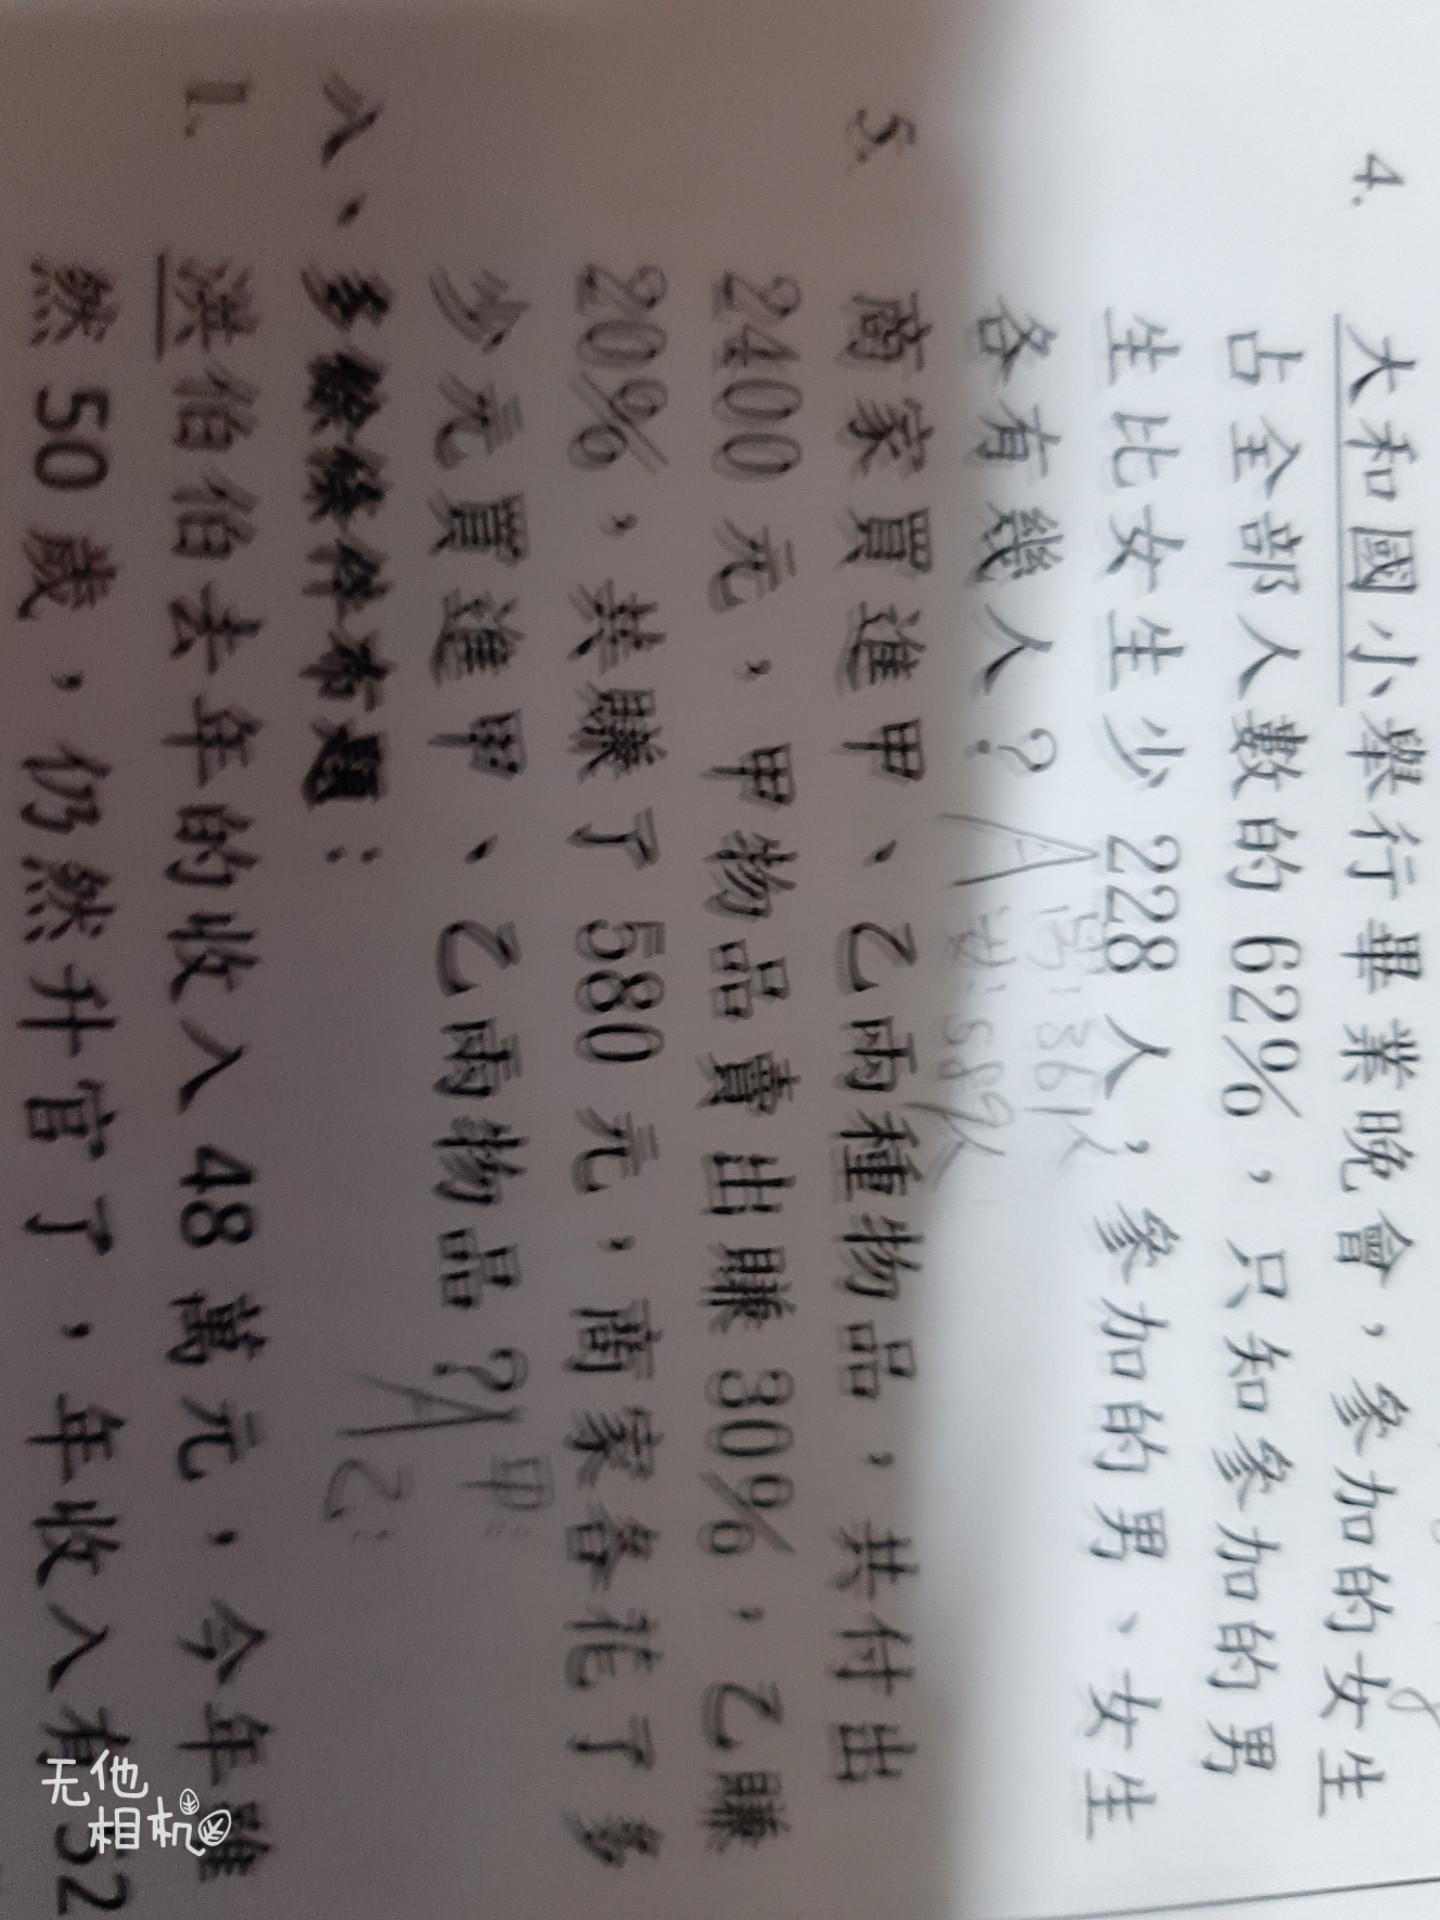 4. 大和國小舉行畢業晚會，參加的女生
占全部人數的 62%，只知參加的男
生比女生少 228 人，參加的男、女生
各有幾人？
A 男:361人
女:589人
5. 商家買進甲、乙兩種物品，共付出
2400 元，甲物品賣出賺 30%，乙賺
20%，共賺了 580 元，商家各花了多
少元買進甲、乙兩物品？
A 甲:
乙:
八、多
1. 洪伯伯去年的收入 48 萬元，今年雖
然 50 歲，仍然升官了，年收入有 52
无他
相机